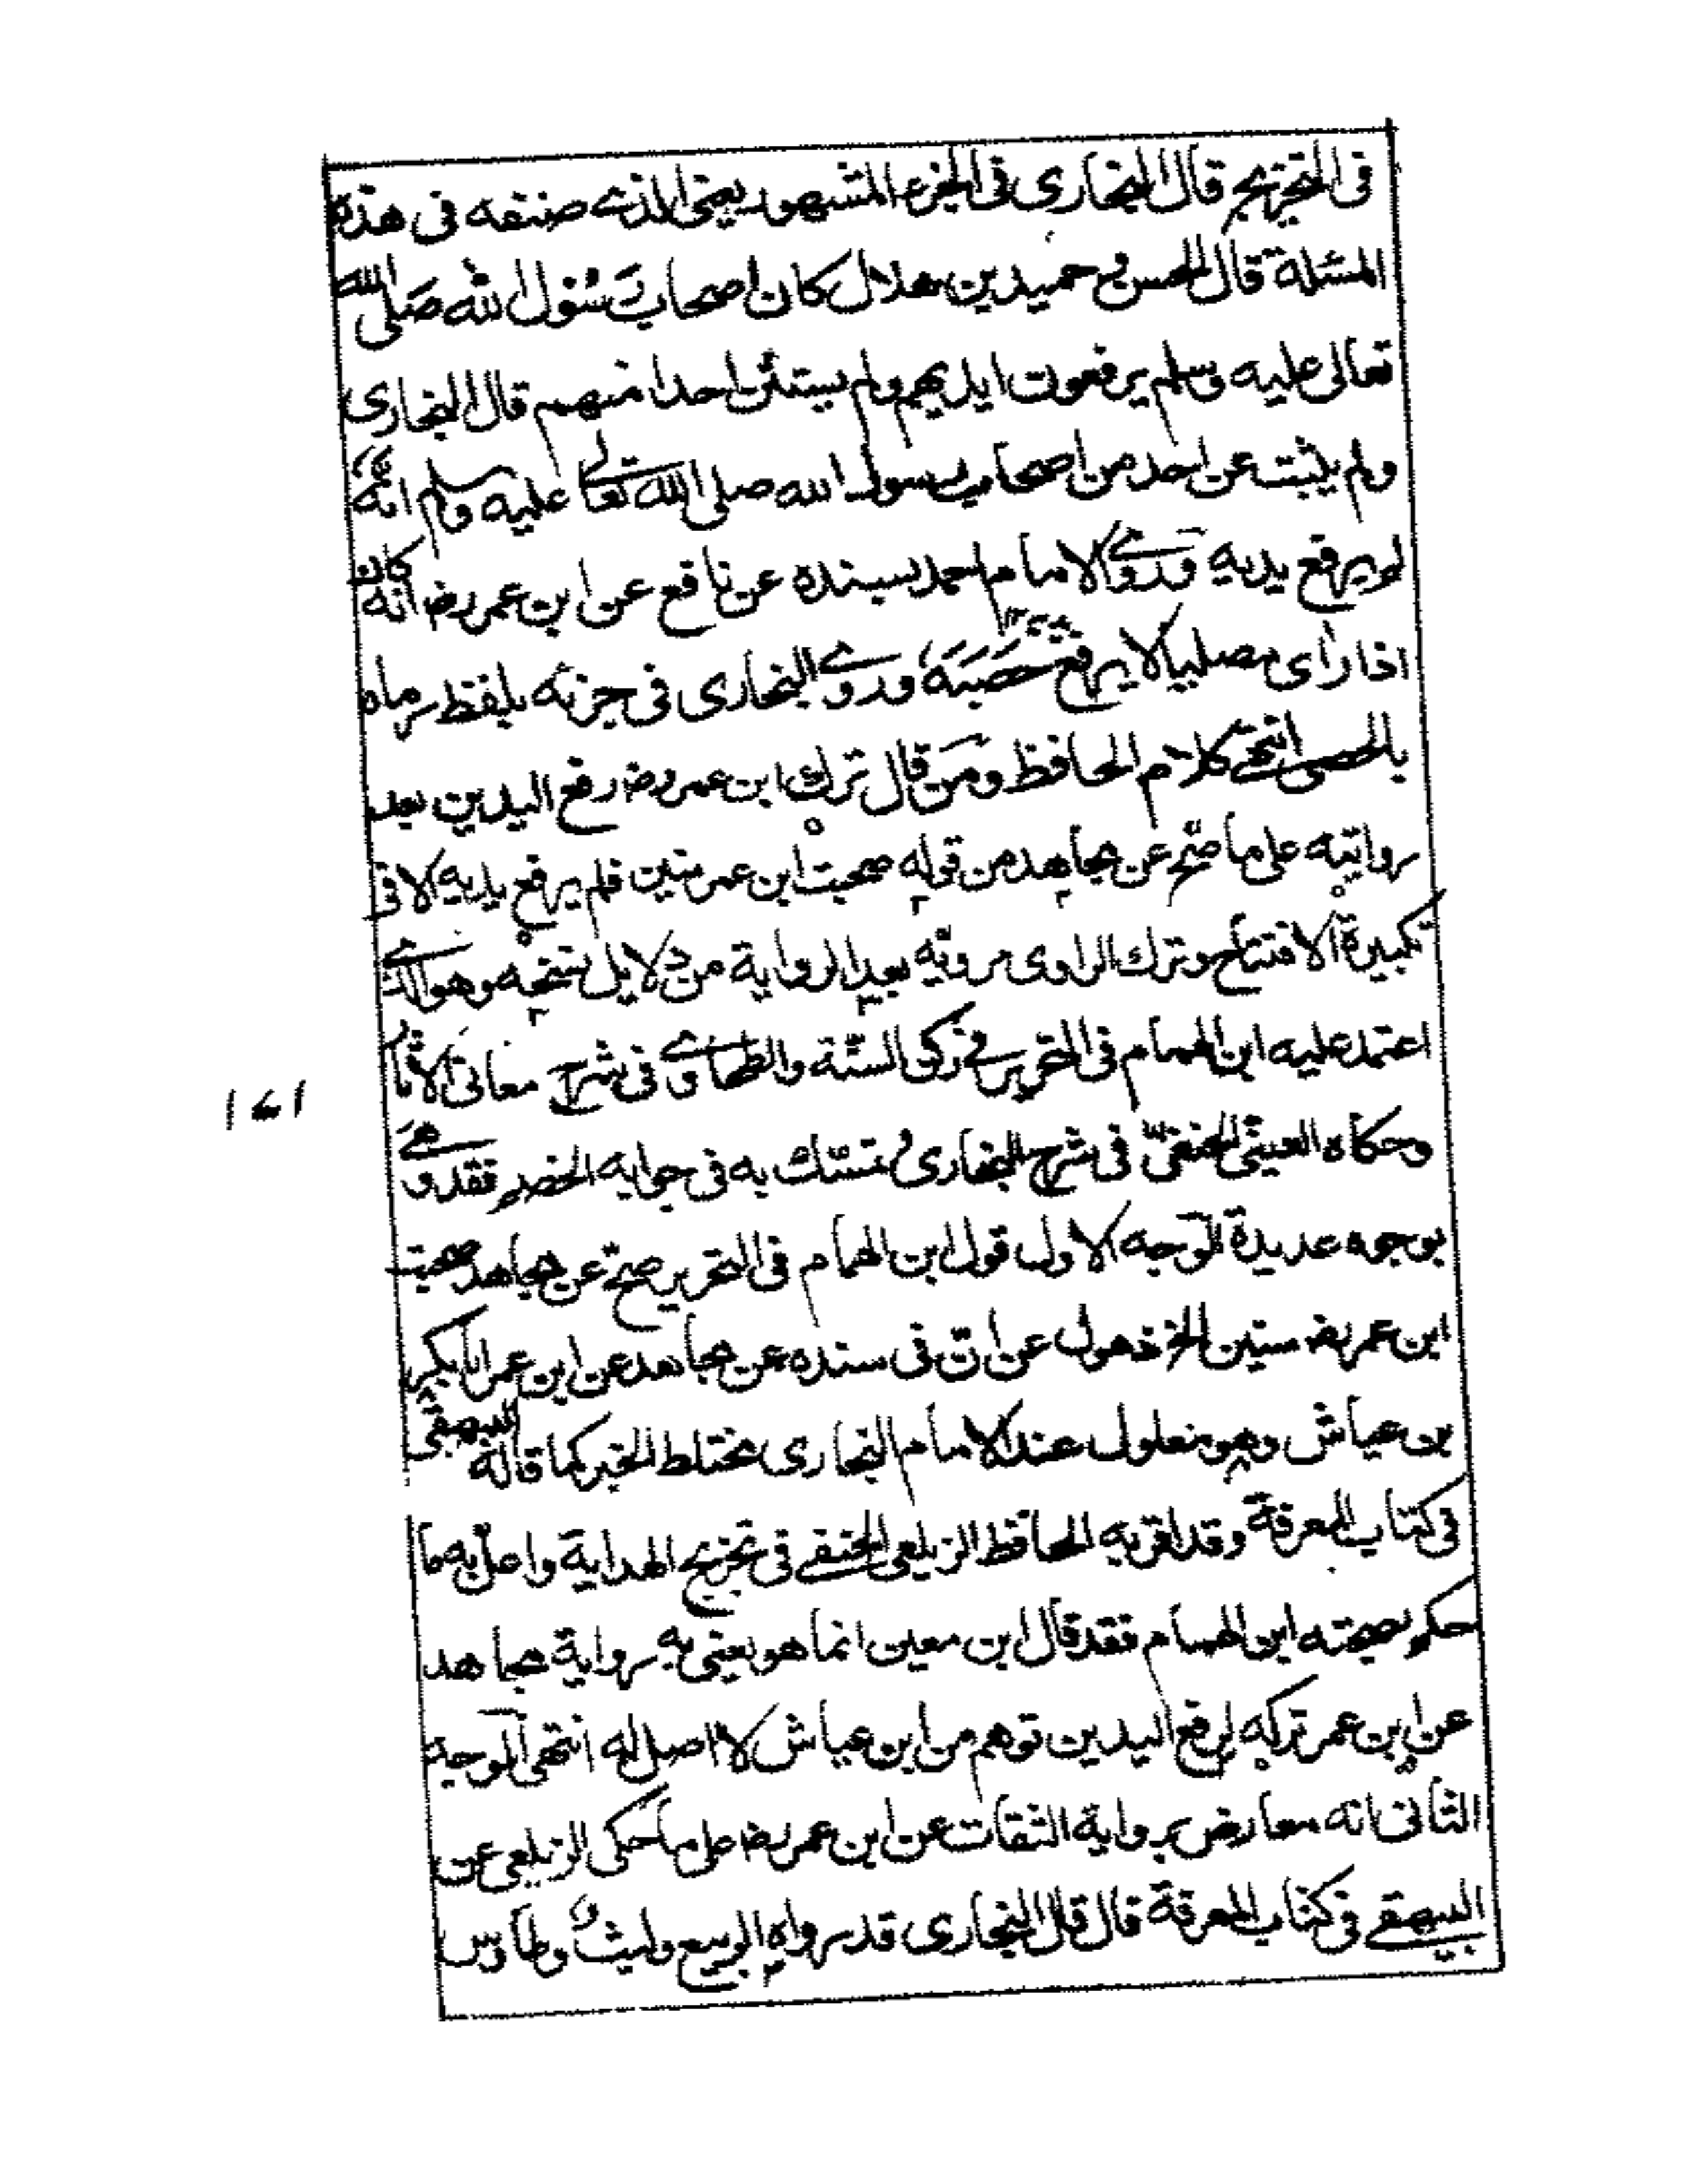 فى التخريج قال البخارى فى الجزء المشهور يعنى الذے صنفه فى هذه
المسئلة قال الحسن و حميد بن هلال كان اصحاب رَسُوْل الله صَلى الله
تعالى عليه وسلم يرفعون ايديهم ولم يستثن احدا منهم قال البخارى
ولم يثبت عن احد من اصحاب رسول الله صلى الله تعالے عليه وسلم انه
لم يرفع يديه وروے الامام احمد بسنده عن نافع عن ابن عمر رض انه كان
اذا راى مصليا لا يرفع حَصَبَهَ وروے البخارى فى جزئه بلفظ رماه
بالحصى انتهے كلام الحافظ ومَن قال ترك ابن عمر رض رفع اليدين بعد
روايته على ما صحّ عن مجاهد من قوله صحبت ابن عمر سنين فلم يرفع يديه الا فى
تكبيرة الافتتاح وترك الراوى مرويّه بعد الرواية من دلايل نسخه وهو الذے
اعتمد عليه ابن الهمام فى التحرير فے زكى السنّة والطحاوے فى شرح معانى الاثار
وحكاه العينىّ الحنفىّ فى شرح البخارى و تمسّك به فى جوابه الخصم فقد وهے
بوجوه عديدة الوجه الاول قول ابن الهمام فى التحرير صحّ عن مجاهد صحبت
ابن عمر رض سنين الخ ذهول عن انّ فى سنده عن مجاهد عن ابن عمر ابا بكر
بن عياش وهو معلول عند الامام البخارى مختلط الخبر كما قاله البيهقى
فى كتاب المعرفة وقد اقر به الحافظ الزيلعى الحنفے فى تخريج الهداية واعلّ به ما
حكم بصحته ابن الهمام فقد قال ابن معين انما هو يعنى به رواية مجاهد
عن ابن عمر تركه لرفع اليدين توهم من ابن عياش لا اصل له انتهى الوجه
الثانى انه معارض برواية الثقات عن ابن عمر رض على ما حكى الزيلعى عن
البيهقے فى كتاب المعرفة قال قال البخارى قد رواه الربيع وليث و طاوس
١٤١